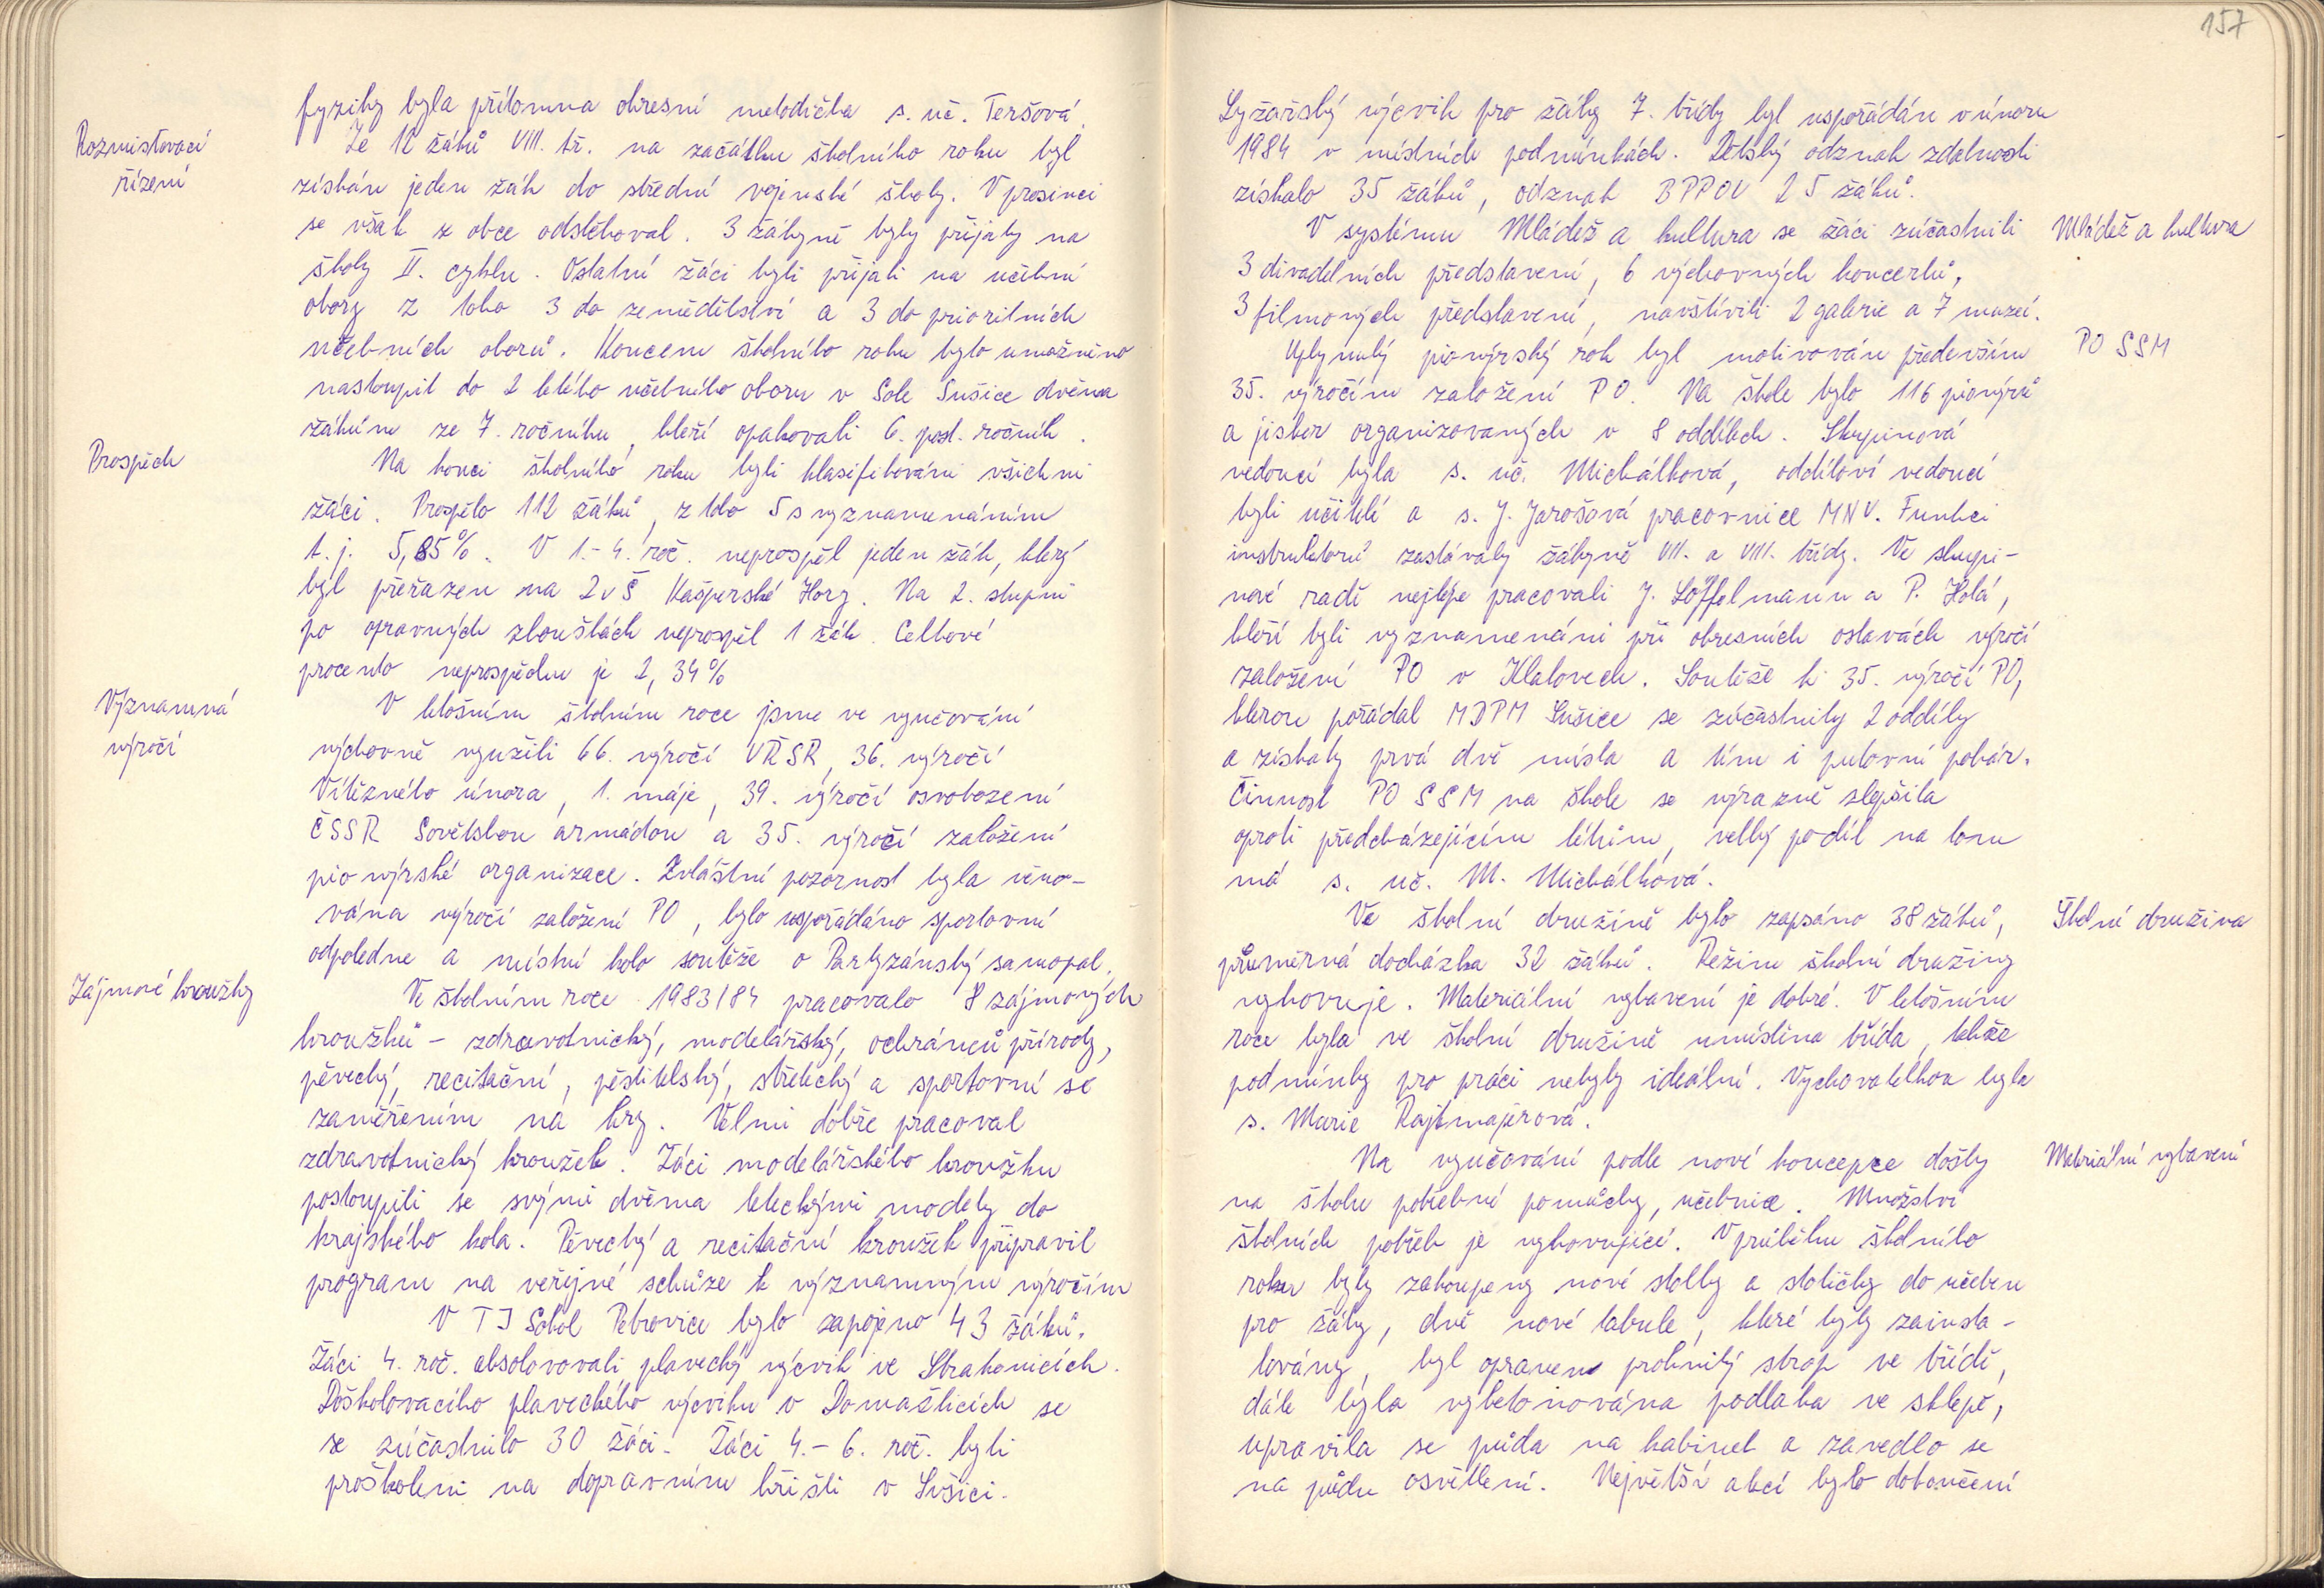 fyziky byla přítomna okresní metodička s. uč. Teršová.
Rozmisťovací
řízení
Ze 12 žáků VIII. tř. na začátku školního roku byl
získán jeden žák do střední vojenské školy. V prosinci
se však z obce odstěhoval. 3 žákyně byly přijaty na
školy II. cyklu. Ostatní žáci byli přijati na učební
obory z toho 3 do zemědělství a 3 do prioritních
učebních oborů. Koncem školního roku bylo umožněno
nastoupit do 2 letého učebního oboru v Sole Sušice dvěma
žákům ze 7. ročníku, kteří opakovali 6. post. ročník.
Prospěch
Na konci školního roku byli klasifikováni všichni
žáci. Prospělo 112 žáků, z toho 5 s vyznamenáním
t. j. 5,85%. V 1.-4. roč. neprospěl jeden žák, který
byl přeřazen na ZvŠ Kašperské Hory. Na 2. stupni
po opravných zkouškách neprospěl 1 žák. Celkové
procento neprospěchu je 2,34%
Významná
výročí
V letošním školním roce jsme ve vyučování
výchovně využili 66. výročí VŘSR, 36. výročí
Vítězného února, 1. máje, 39. výročí osvobození
ČSSR Sovětskou armádou a 35. výročí založení
pionýrské organizace. Zvláštní pozornost byla věno-
vána výročí založení PO, bylo uspořádáno sportovní
odpoledne a místní kolo soutěže o Partyzánský samopal.
Zájmové kroužky
Ve školním roce 1983/84 pracovalo 8 zájmových
kroužků - zdravotnický, modelářský, ochránců přírody,
pěvecký, recitační, pěstitelský, střelecký a sportovní se
zaměřením na hry. Velmi dobře pracoval
zdravotnický kroužek. Žáci modelářského kroužku
postoupili se svými dvěma leteckými modely do
krajského kola. Pěvecký a recitační kroužek připravil
program na veřejné schůze k významným výročím
V TJ Sokol Petrovice bylo zapojeno 43 žáků.
Žáci 4. roč. absolvovali plavecký výcvik ve Strakonicích.
Doškolovacího plaveckého výcviku v Domažlicích se
se zúčastnilo 30 žáci. Žáci 4.-6. roč. byli
proškoleni na dopravním hřišti v Sušici.
157
Lyžařský výcvik pro žáky 7. třídy byl uspořádán v únoru
1984 v místních podmínkách. Dětský odznak zdatnosti
získalo 35 žáků, odznak BPPOV 25 žáků.
V systému Mládež a kultura se žáci zúčastnili
Mládež a kultura
3 divadelních představení, 6 výchovných koncertů,
3 filmových představení, navštívili 2 galerie a 7 muzeí.
Uplynulý pionýrský rok byl motivován především
PO SSM
35. výročím založení PO. Na škole bylo 116 pionýrů
a jisker organizovaných v 8 oddílech. Skupinová
vedoucí byla s. uč. Michálková, oddíloví vedoucí
byli učitelé a s. J. Jarošová pracovnice MNV. Funkci
instruktorů zastávaly žákyně VII. a VIII. třídy. Ve skupi-
nové radě nejlépe pracovali J. Löffelmann a P. Holá,
kteří byli vyznamenáni při okresních oslavách výročí
založení PO v Klatovech. Soutěže k 35. výročí PO,
kterou pořádal MDPM Sušice se zúčastnily 2 oddíly
a získaly prvá dvě místa a tím i putovní pohár.
Činnost PO SSM na škole se výrazně zlepšila
oproti předcházejícím létům, velký podíl na tom
má s. uč. M. Michálková.
Ve školní družině bylo zapsáno 38 žáků,
Školní družina
průměrná docházka 32 žáků. Režim školní družiny
vyhovuje. Materiální vybavení je dobré. V letošním
roce byla ve školní družině umístěna třída, takže
podmínky pro práci nebyly ideální. Vychovatelkou byla
s. Marie Rajtmajerová.
Na vyučování podle nové koncepce došly
Materiální vybavení
na školu potřebné pomůcky, učebnice. Množství
školních potřeb je vyhovující. V průběhu školního
roku byly zakoupeny nové stolky a stoličky do učeben
pro žáky, dvě nové tabule, které byly zainsta-
lovány, byl opraven prohnilý strop ve třídě,
dále byla vybetonována podlaha ve sklepě,
upravila se půda na kabinet a zavedlo se
na půdu osvětlení. Největší akcí bylo dokončení